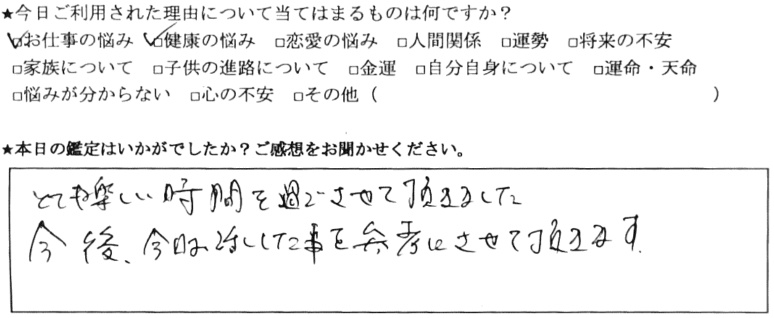 ★今日ご利用された理由について当てはまるものは何ですか？
☑お仕事の悩み ☑健康の悩み □恋愛の悩み □人間関係 □運勢 □将来の不安
□家族について □子供の進路について □金運 □自分自身について □運命・天命
□悩みが分からない □心の不安 □その他（ ）
★本日の鑑定はいかがでしたか？ご感想をお聞かせください。
とても楽しい時間を過ごさせて頂きました
今後、今日お話しした事を参考にさせて頂きます。